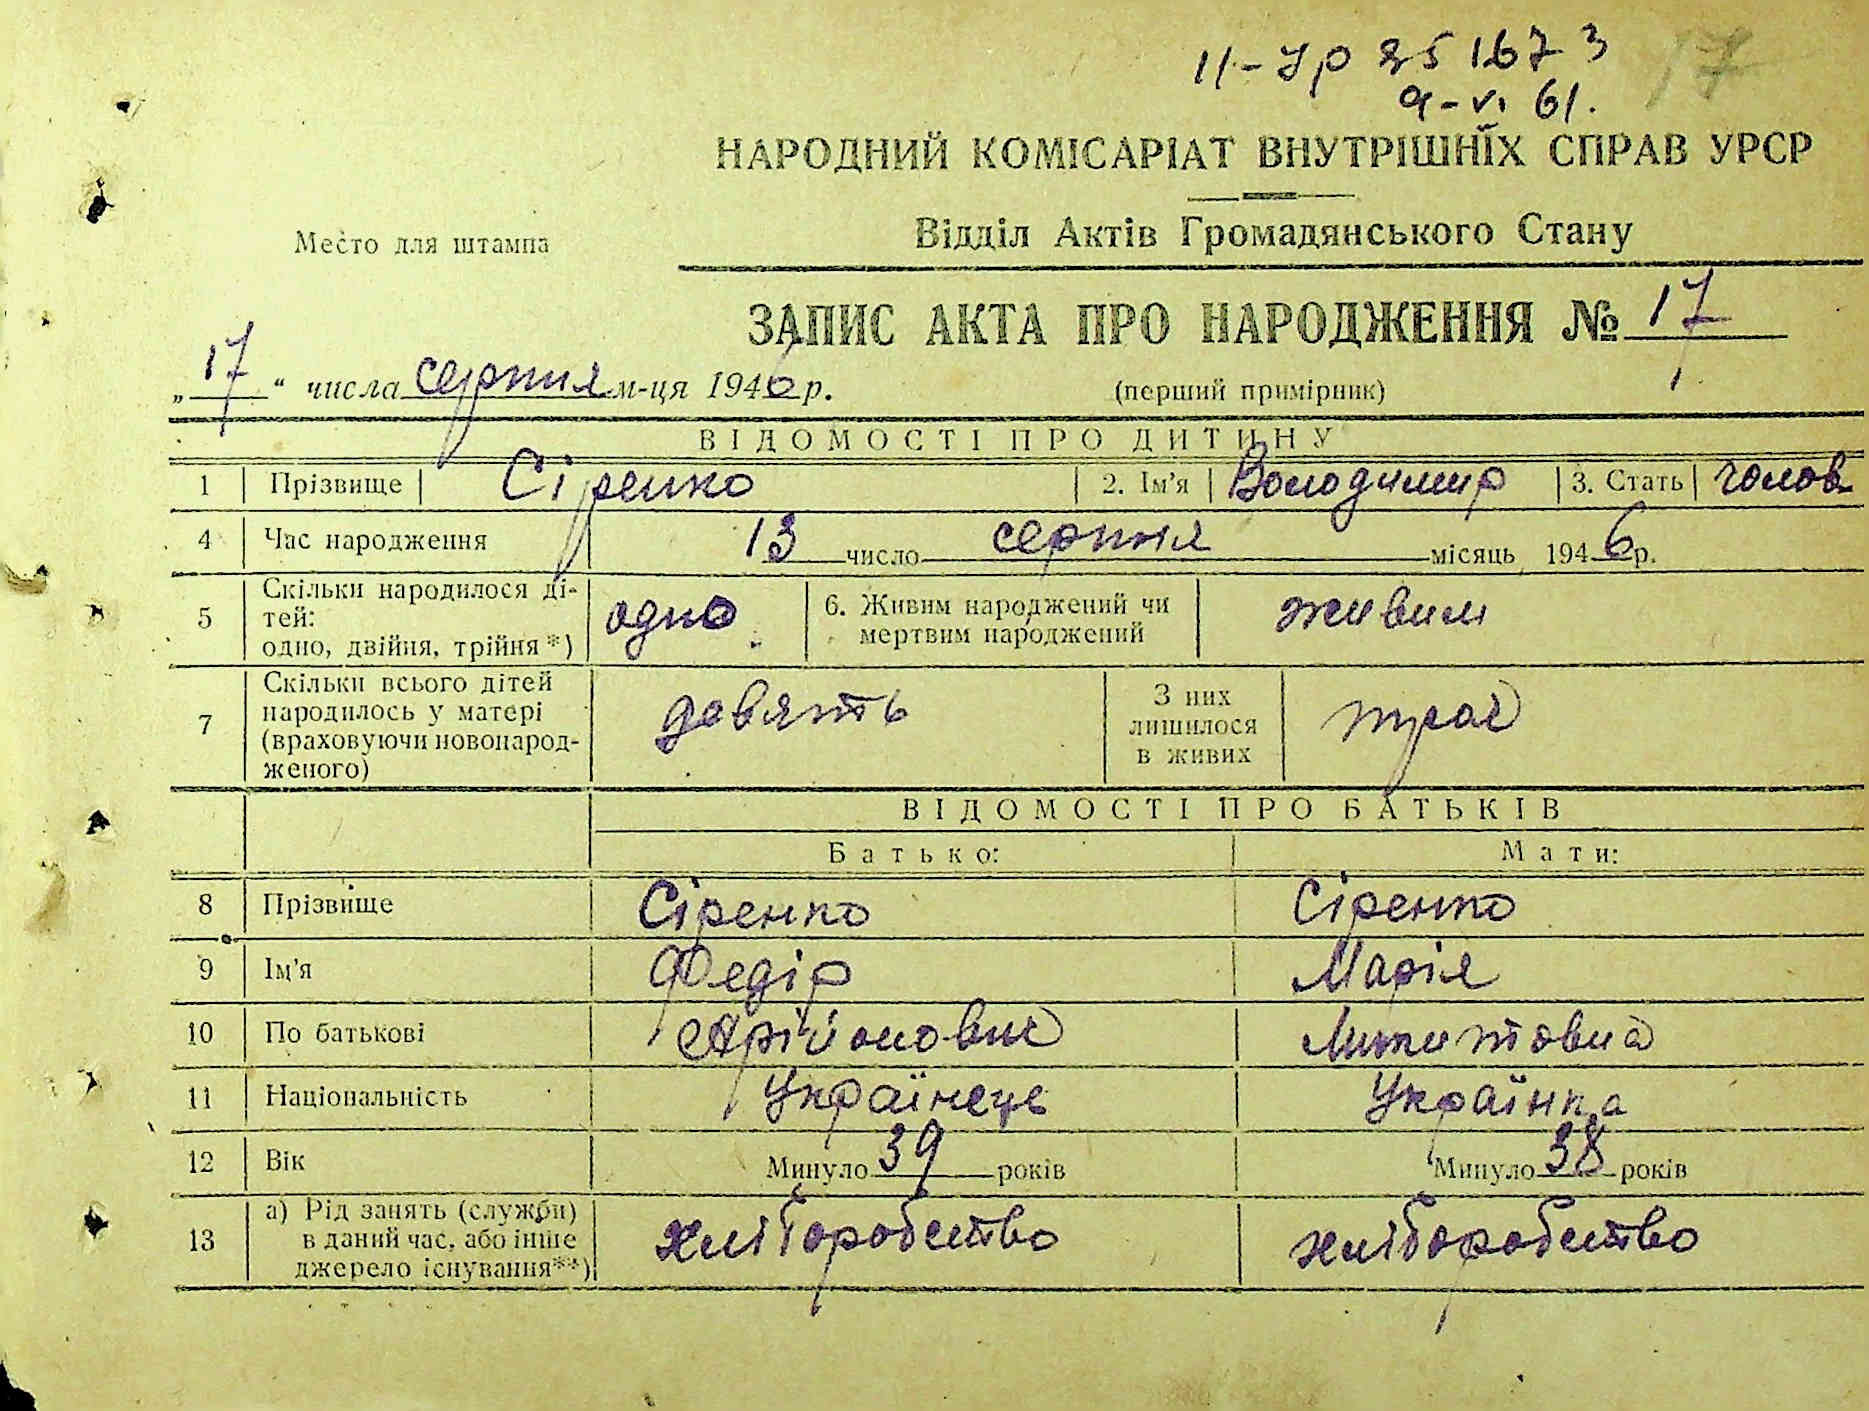 11-Ур 251673 17
9-VI 61.
НАРОДНИЙ КОМІСАРІАТ ВНУТРІШНЇХ СПРАВ УРСР
Место для штампа
Відділ Актів Громадянського Стану
ЗАПИС АКТА ПРО НАРОДЖЕННЯ № 17
„17“ числа серпня м-ця 1946 р. (перший примірник)
ВІДОМОСТІ ПРО ДИТИНУ
1 Прізвище Сіренко 2. Ім'я Володимир 3. Стать чолов.
4 Час народження 13 число серпня місяць 1946 р.
5 Скільки народилося ді-
тей:
одно, двійня, трійня*) одно 6. Живим народжений чи
мертвим народжений живим
7 Скільки всього дітей
народилось у матері
(враховуючи новонарод-
женого) девять З них
лишилося
в живих троє
ВІДОМОСТІ ПРО БАТЬКІВ
Батько: Мати:
8 Прізвище Сіренко Сіренко
9 Ім'я Федір Марія
10 По батькові Микитовна
11 Національність Українець Українка
12 Вік Минуло 39 років Минуло 38 років
13 а) Рід занять (служби)
в даний час, або інше
джерело існування**) хліборобство хліборобство